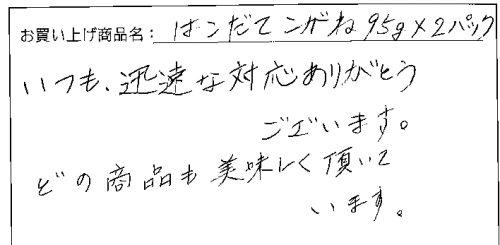 お買い上げ商品名: はこだてこがね95g×2パック
いつも、迅速な対応ありがとう
ございます。
どの商品も美味しく頂いて
います。